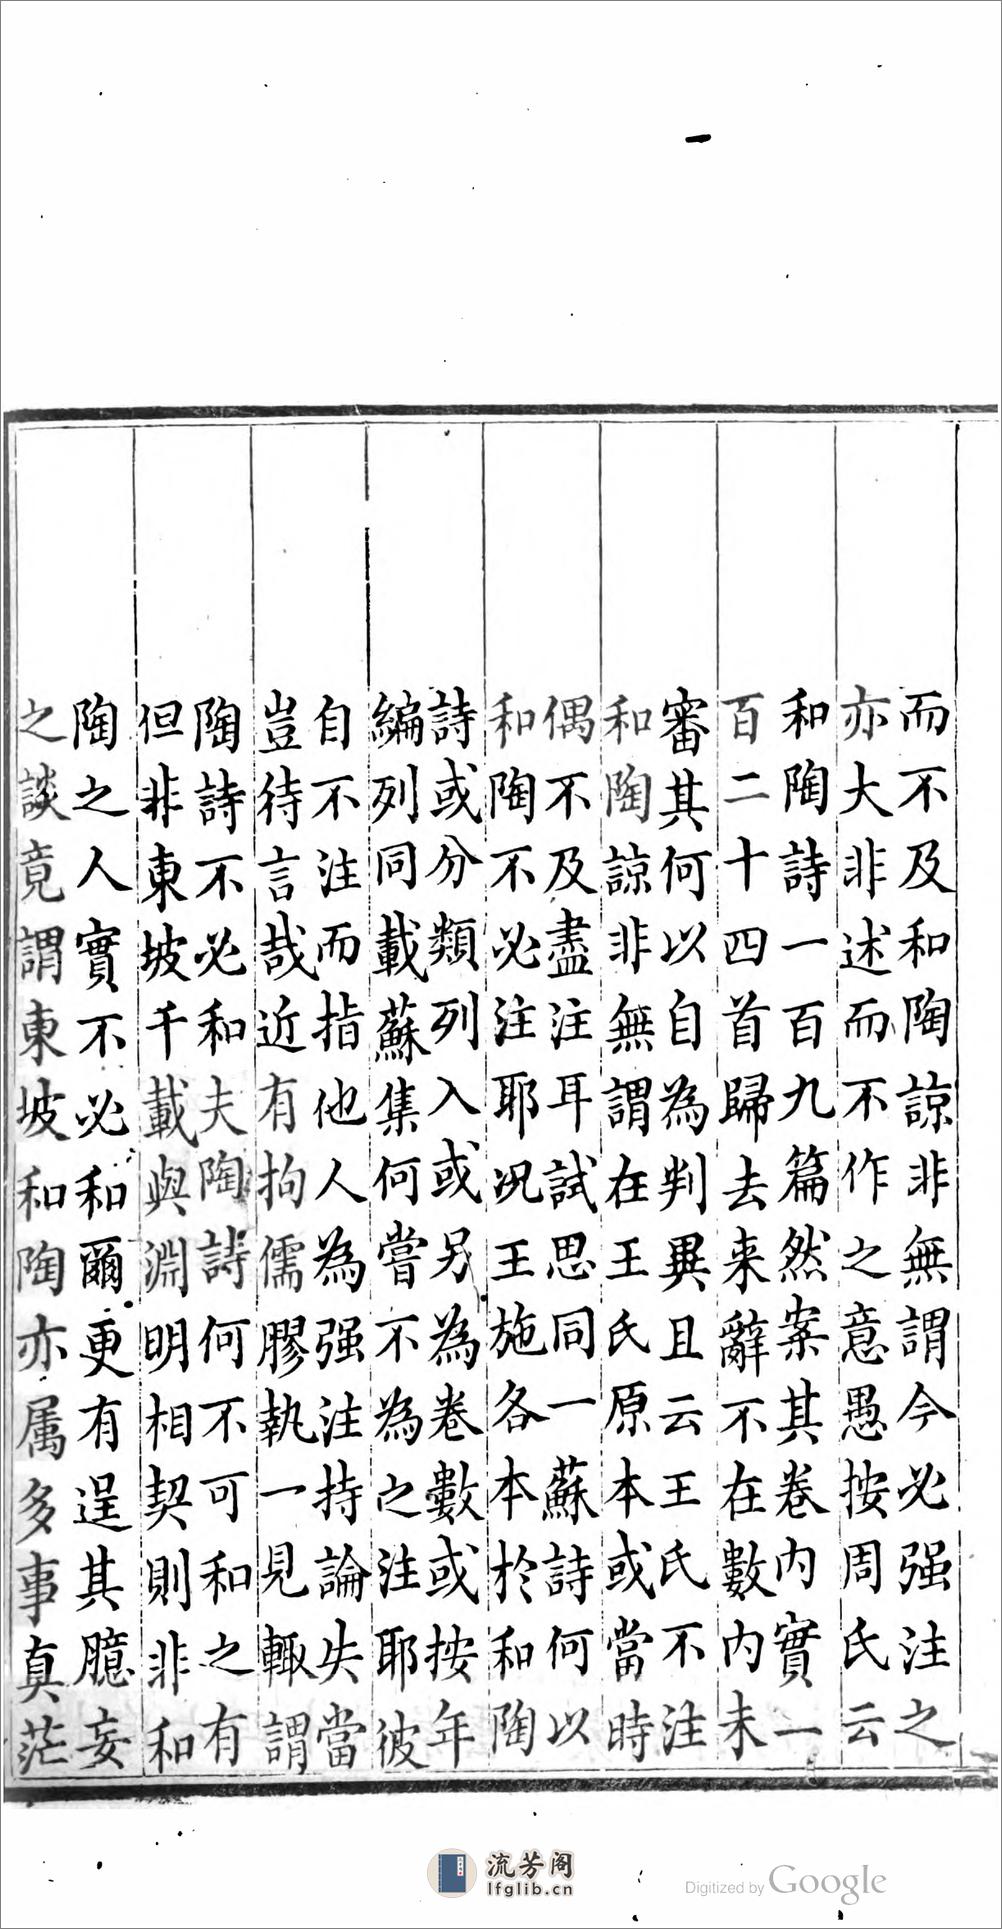 而不及和陶諒非無謂今必强注之
亦大非述而不作之意愚按周氏云
和陶詩一百九篇然案其卷内實一
百二十四首歸去来辭不在數内未
審其何以自為判異且云王氏不注
和陶諒非無謂在王氏原本或當時
偶不及盡注耳試思同一蘇詩何以
和陶不必注耶况王施各本於和陶
詩或分類列入或另為卷數或按年
編列同載蘇集何嘗不為之注耶彼
自不注而指他人為强注持論失當
豈待言哉近有拘儒膠執一見輙謂
陶詩不必和夫陶詩何不可和之有
但非東坡千載與淵明相契則非和
陶之人實不必和爾更有逞其臆妄
之談竟謂東坡和陶亦属多事真茫
流芳阁
lfglib.cn
Digitized by Google